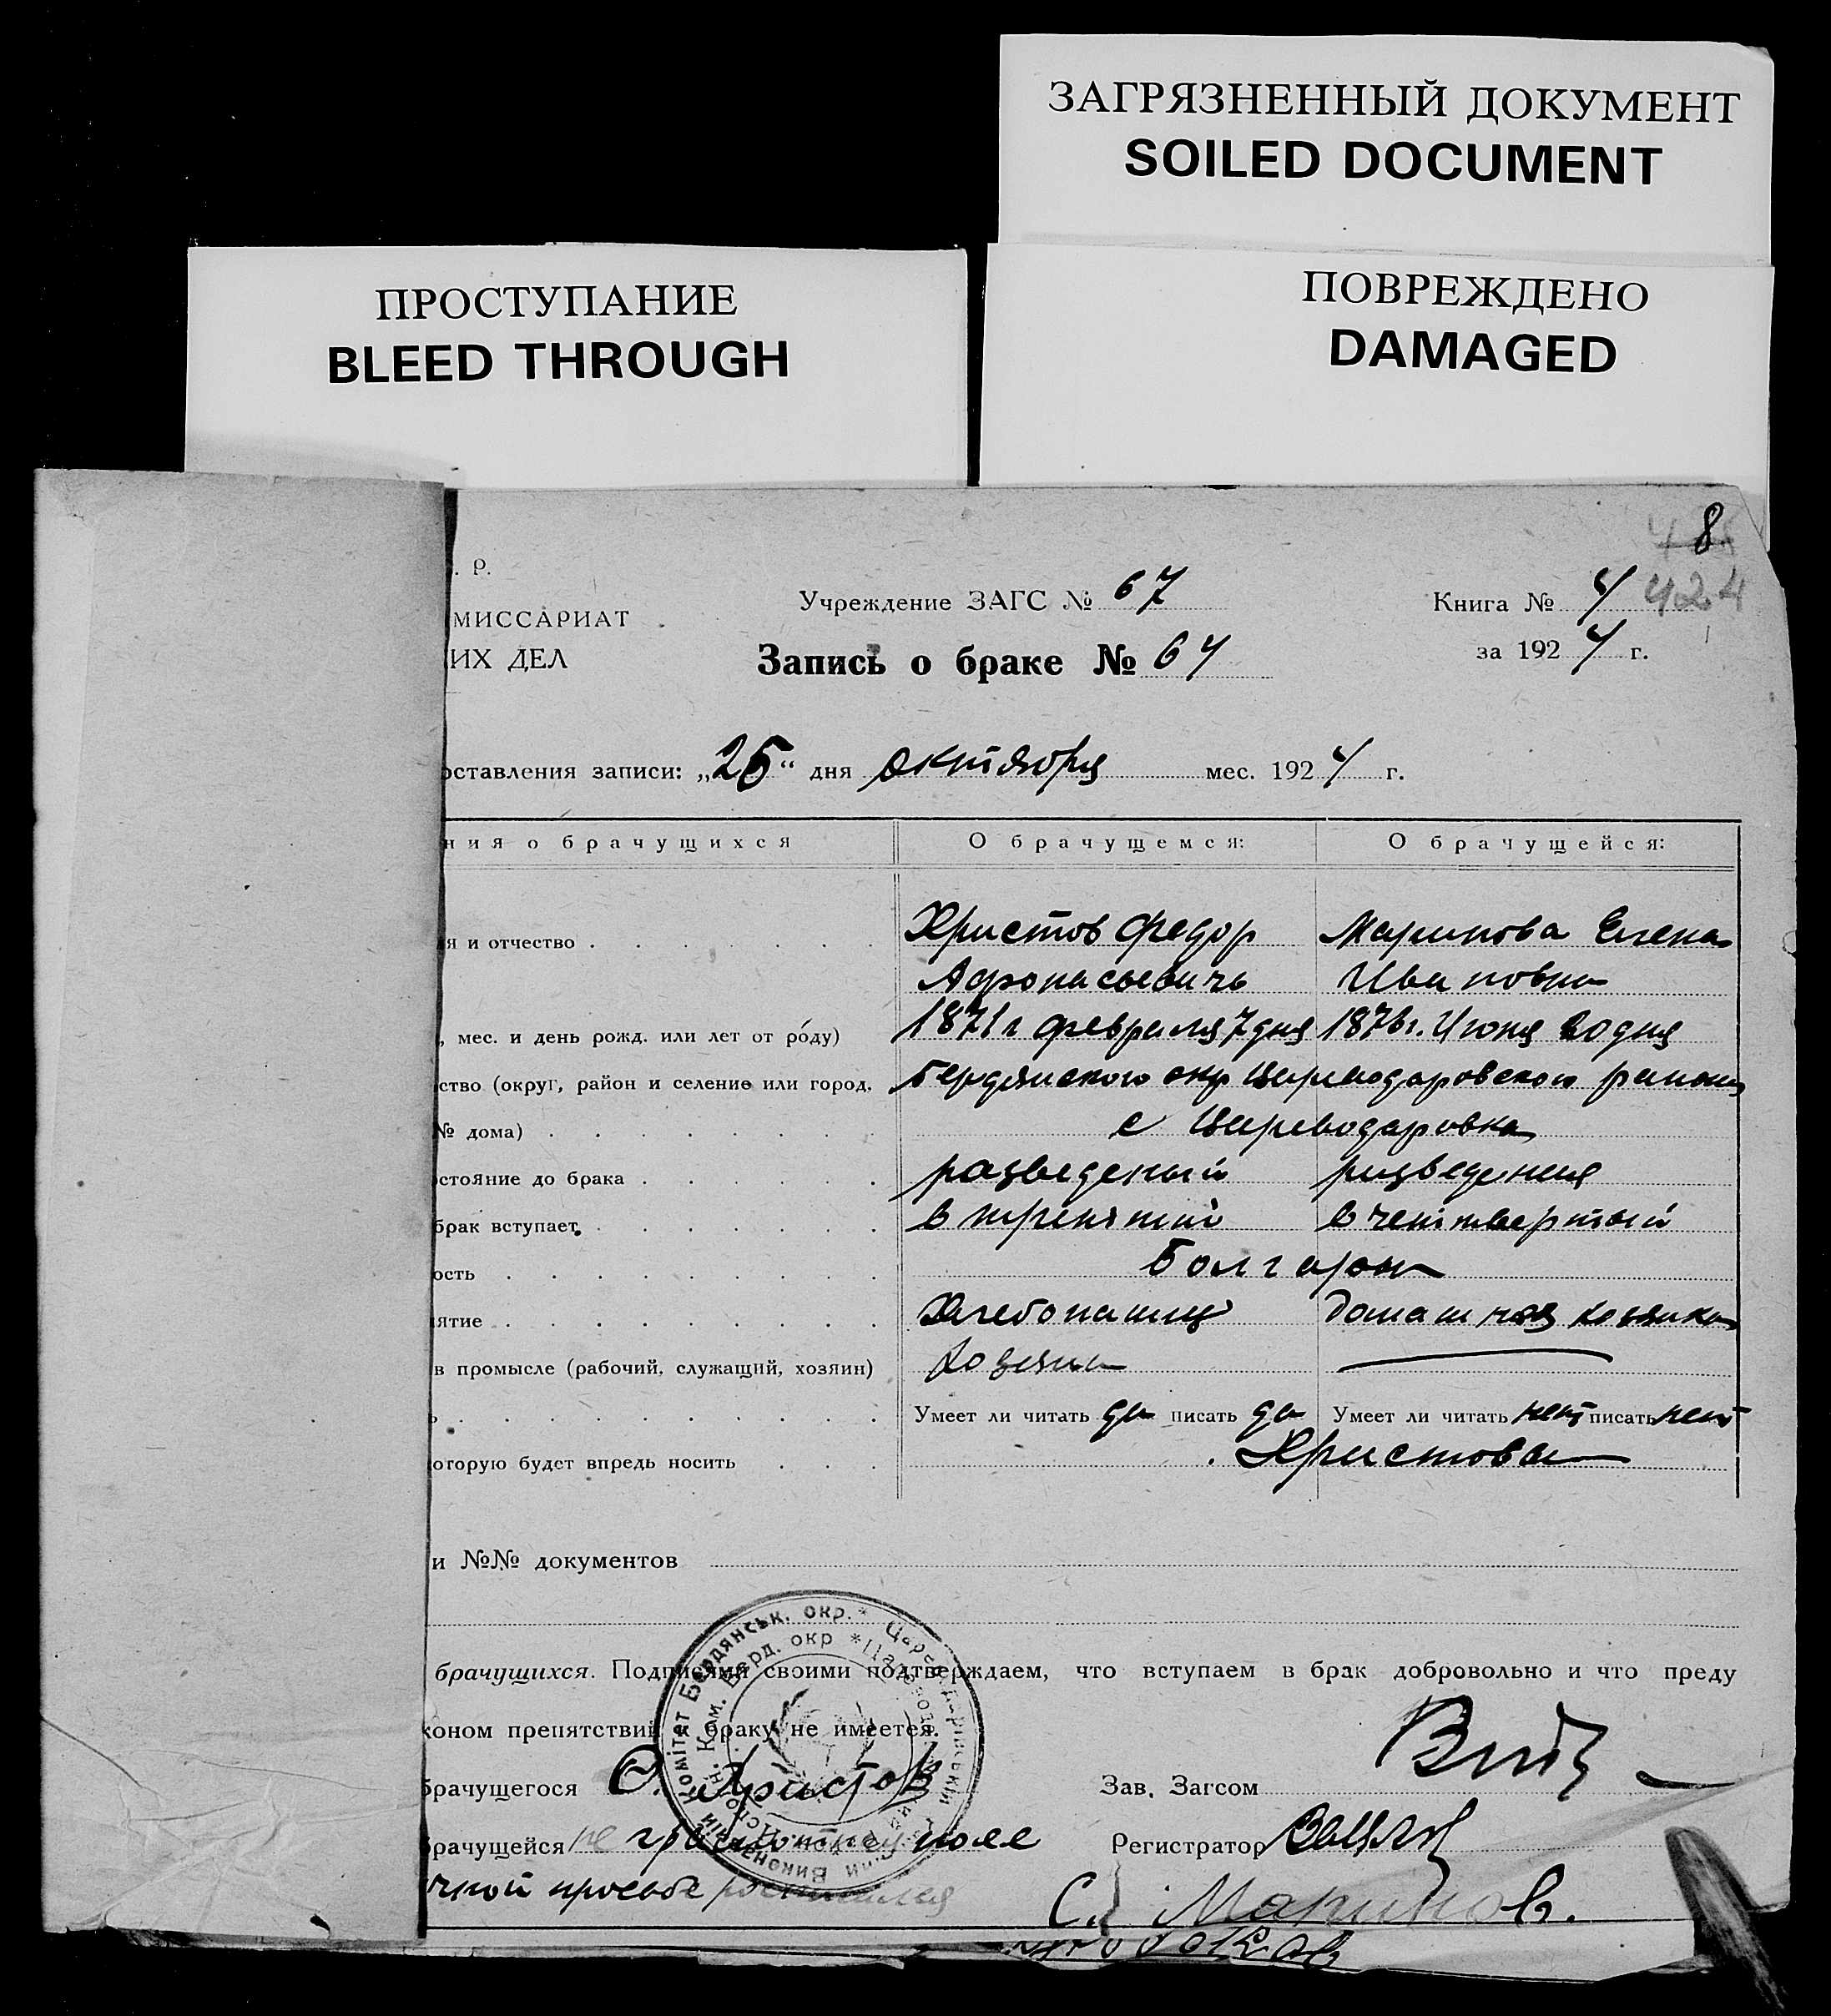 ЗАГРЯЗНЕННЫЙ ДОКУМЕНТ
SOILED DOCUMENT
ПРОСТУПАНИЕ
BLEED THROUGH
ПОВРЕЖДЕНО
DAMAGED
8
. Р.
Учреждение ЗАГС № 67
Книга № 4 424
МИССАРИАТ
ИХ ДЕЛ
Запись о браке № 64
за 1924 г.
оставления записи: „25“ дня октября мес. 1924 г.
ния о брачущихся
О брачущемся:
О брачущейся:
я и отчество
Христов Федор
Маринова Елена
Афонасьевичь
Ивановна
, мес. и день рожд. или лет от роду)
1871 г февраля 7 дня
187 г. Июня 20 дня
ство (округ, район и селение или город,
Бердянского окр Цареводаровского района
№ дома)
с Цареводаровка
стояние до брака
разведеный
разведеная
брак вступает
в третий
в четвертый
ость
Болгары
ятие
Хлебопашец
домашняя хозяйка
в промысле (рабочий, служащий, хозяин)
хозяин
Умеет ли читать да писать да
Умеет ли читать нет писать нет
оторую будет впредь носить
Христовы
и №№ документов
брачущихся. Подписями своими подтверждаем, что вступаем в брак добровольно и что преду
коном препятствий к браку не имеется.
брачущегося Ф. Христов
Зав. Загсом
брачущейся не грамотную
Регистратор
чной просьбе росписался
С. Маринов.
Бердянськ. окр. * Цареводарівський
Виконавчий Комітет
Исполн. Ком. Берд. окр *